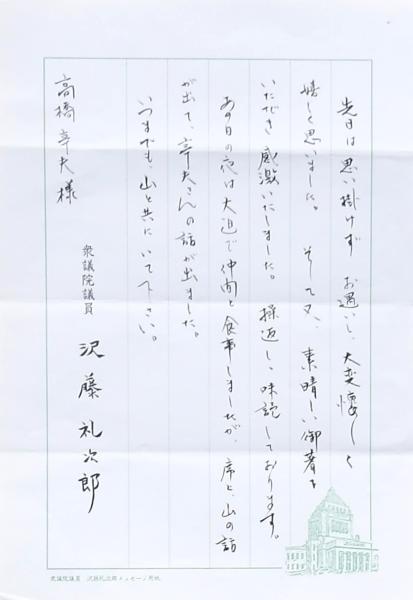 先日は思い掛けずお遇いし、大変懐しく
嬉しく思いました。そして又、素晴しい御著を
いただき感激いたしました。繰返し味読しております。
あの日の夜は大迫で仲間と食事しましたが、席上、山の話
が出て、幸夫さんの話が出ました。
いつまでも山と共にいて下さい。
衆議院議員 沢藤礼次郎
高橋幸夫様
衆議院議員 沢藤礼次郎メッセージ用紙